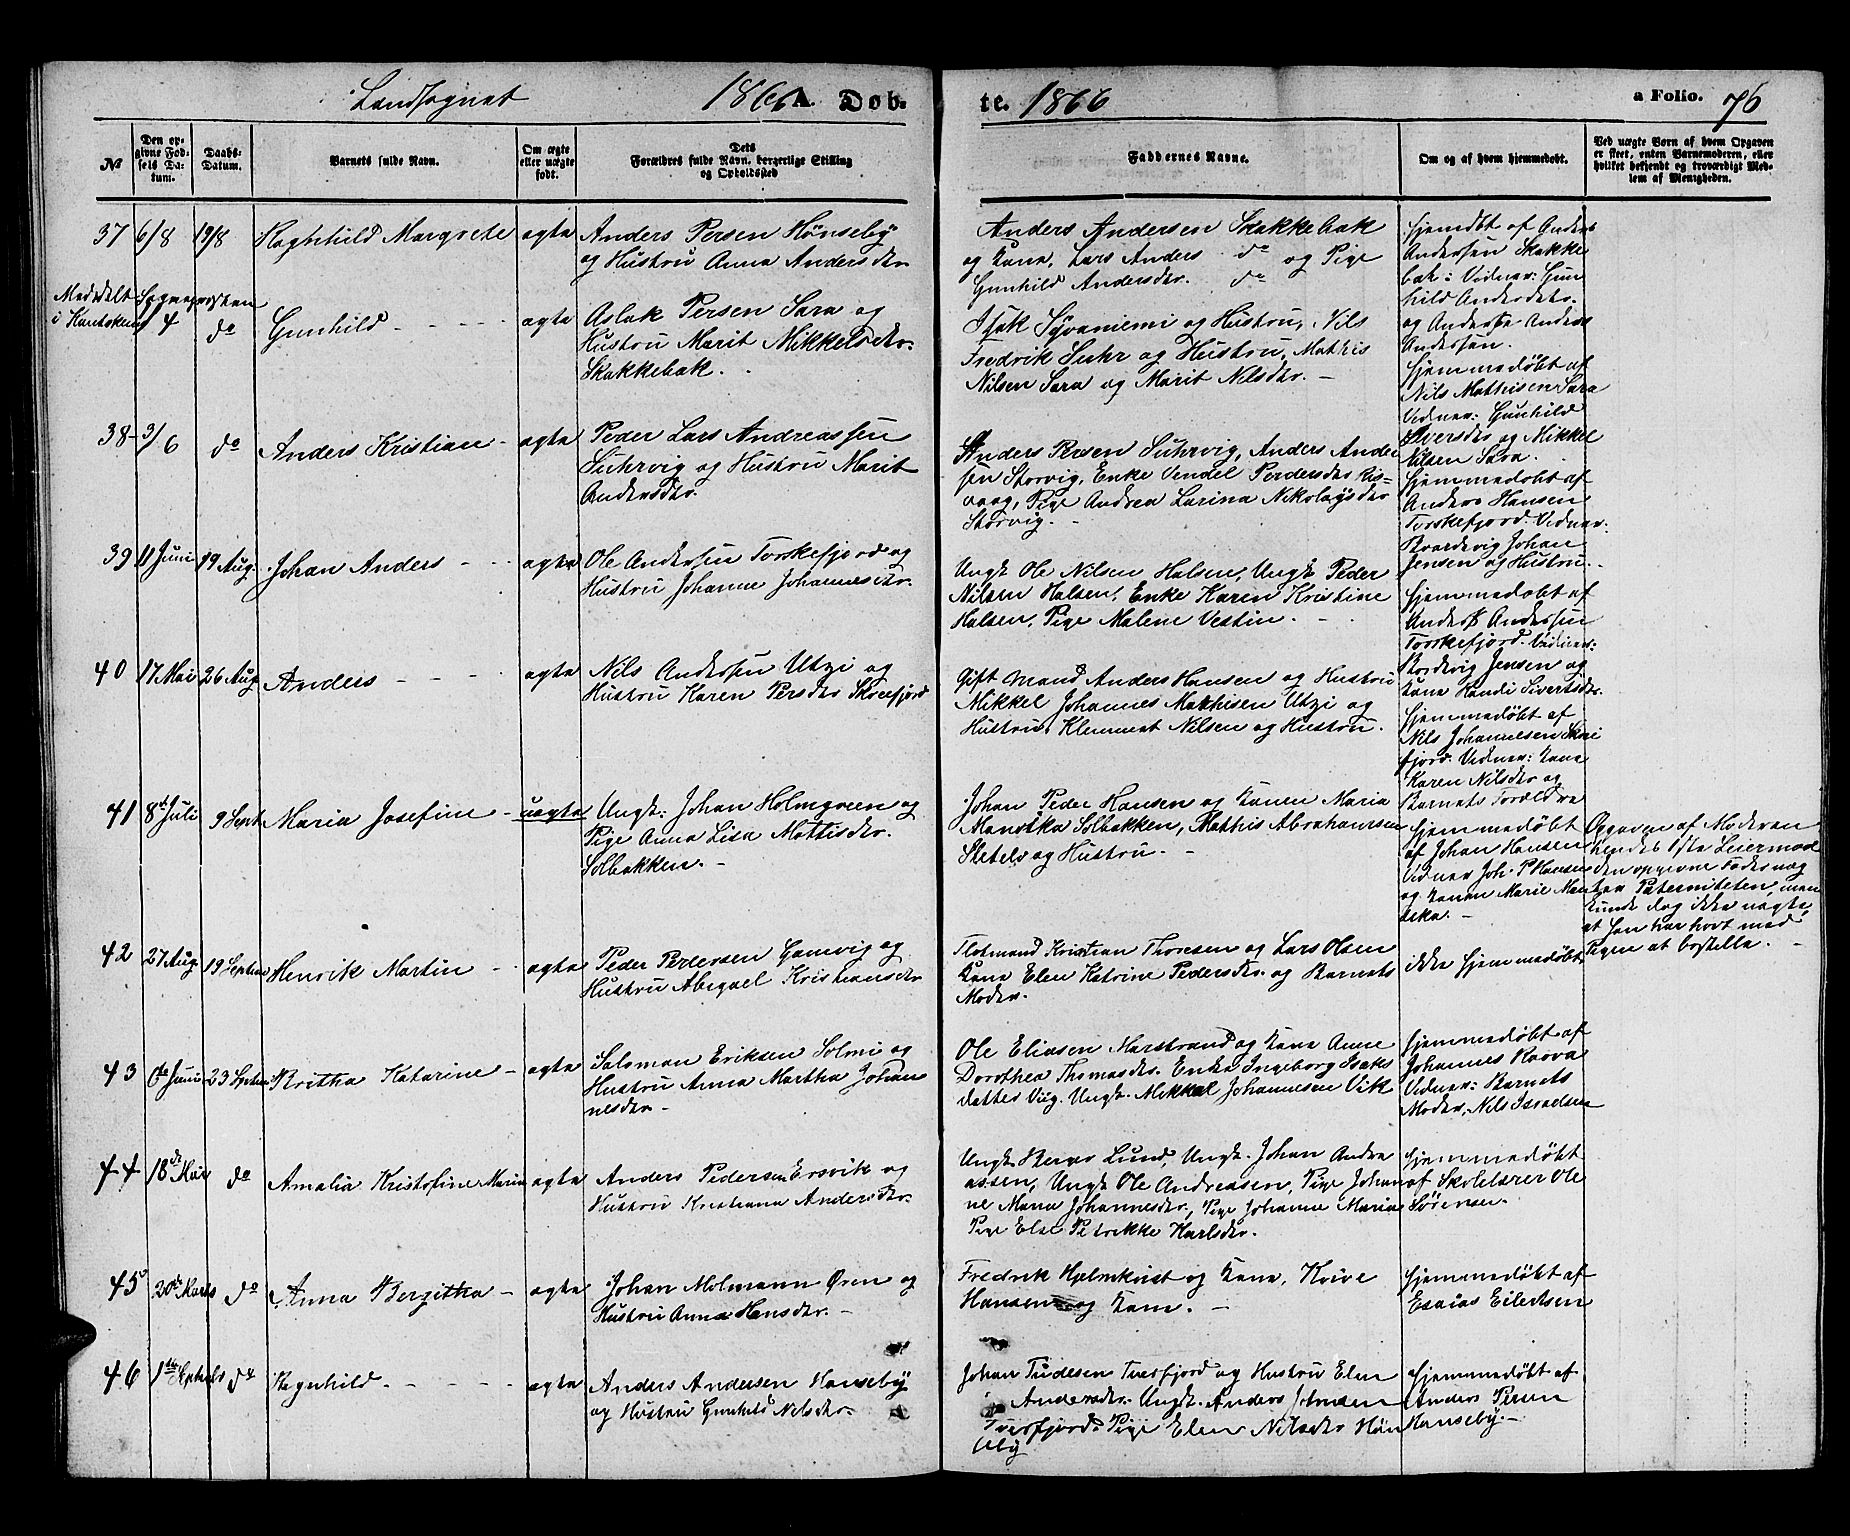 Landsognet 1866 A. Døb-
te. 1866 a Folio. 76
No
Den op-
givne Fød-
sels Da-
tum.
Daabs-
Datum.
Barnets fulde Navn.
Om ægte
eller uægte
født.
Dets
Forældres fulde Navn, borgerlige Stilling
og Opholdssted
Faddernes Navne.
Om og af hvem hjemmedøbt.
Ved uægte Børn af hvem Opgaven
er skeet, enten Barnemoderen, eller
hvilket bekjendt og troværdigt Med-
lem af Menigheden.
37 6/8 19/8 Raghnhild Margrete ægte
Anders Persen Hønseby
og Hustru Anna Andersdtr
Anders Andersen Skakkebak
og Kone, Lars Anders do og Pige
Gunhild Andersdtr. do
Hjemdbt af Anders
Andersen Skakke
bak: Vidner: Gun
hild Andersdtr.
og Anders Anders
Andersen.
Meddelt Sognepresten
i Kautokeino 4 do Gunhild - - - - ægte
Aslak Persen Sara og
Hustru Marit Mikkelsdtr.
Skakkebak.
Isak Syvaniemi og Hustru, Nils
Fredrik Suhr og Hustru, Mathis
Nilsen Sara og Marit Nilsdtr. -
Hjemmedøbt af
Nils Mathisen Sara
Vidner: Gunhild
Siversdtr og Mikkel
Nilsen Sara.
38 - 3/6 do Anders Kristian - ægte
Peder Lars Andreassen
Suhrvig og Hustru Marit
Andersdtr.
Anders Persen Suhrvig, Anders Ander
sen Storvig, Enke Vendel Pedersdtr Ris=
vaag, Pige Andrea Larina Nikolaysdtr
Storvig. -
Hjemmedøbt af
Anders Hansen
Torskefjord. Vidner:
Bordevig Johan
Jensen og Hustru.
39 11 Juni 19 Aug. Johan Anders - - ægte
Ole Andersen Torskefjord og
Hustru Johanne Johannesdtr.
Ungk Ole Nilsen Halsen, Ungk Peder
Nilsen Halsen, Enke Karen Kristine
Halsen, Pige Malene Vestin. -
Hjemmedøbt af
Anders Andersen
Torskefjord. Vidner:
Bordevig Jensen og
Kone Randi Sivertsdtr.
40 17 Mai 26 Aug Anders - - - - ægte
Nils Andersen Utzi og
Hustru Karen Persdtr Skoefjord
Gift Mand Anders Hansen og Hustru
Mikkel Johannes Mathisen Utzi og
Hustru, Klemmet Nilsen og Hustru.
Hjemmedøbt af
Nils Johannesen Skoe
fjord. Vidner: Kone
Karen Nilsdtr og
Barnets Forældre
41 8de Juli 9 Sept Maria Josefine - uægte
Ungk: Johan Holmgreen og
Pige Anna Lisa Mattisdtr.
Solbakken. -
Johan Peder Hansen og Konen Maria
Mandtka Solbakken, Mathis Abrahamsen
Sletelv og Hustru. -
Hjemmedøbt
af Johan Hansen
Vidner Joh. P Hansen
og Konen Marie Man
deka. -
Opgaven af Moderen
hendes 1ste Leiermaal
den opgivne Fader næg
ter Paterniteten, men
kunde dog ikke nægte,
at han har havt med
Pigen at bestille. -
42 27 Aug 19 Septbr Henrik Martin - - ægte
Peder Pedersen Gamvig og
Hustru Abigael Kristiansdtr
Flotmand Kristian Thoresen og Lars Olsen
Kone Elen Katrine Pedersdtr. og Barnets
Moder.
ikke hjemmedøbt.
43 6te Juni 23 Septbr Britha Katarine - ægte
Salomon Eriksen Solmi og
Hustru Anna Martha Johan
nesdtr. -
Ole Eliasen Marstrand og Kone Anne
Dorothea Thomasdtr. Enke Ingeborg Isaks
datter Viig. Ungk. Mikkel Johannesen Vik
Hjemmedøbt af
Johannes Raova
Vidner: Barnets
Moder, Nils Israelsen
44 18de Mai do Amalia Kristofine Maria ægte
Anders Pedersen Ersvik og
Hustru Kristiana Andersdtr.
Ungk Berger Lund, Ungk. Johan Andre
assen, Ungk Ole Andreasen, Pige Johan
ne Mana Johannesdtr, Pige Johanne Maria
Pige Else Petrikke Karlsdtr.
Hjemmedøbt
af Skolelærer Ole
Sørensen.
45 20de Marts do Anna Bergitha - ægte
Johan Molmann Øren og
Hustru Anna Hansdtr. -
Fredrik Holmkvist og Kone, Kvive
Hansen og Kone. -
Hjemmedøbt af
Esaias Eilertsen
46 1ste Septbr do Ragnhild - - - - ægte
Anders Andersen Hanseby
og Hustru Gunhild Nilsdtr.
Johan Tudesen Tverfjord og Hustru Elen
Andersdtr. Ungk. Anders Johnsen
Tverfjord. Pige Elen Nilsdtr Høn
seby
Hjemmedøbt af
Anders Persen
Hanseby. -